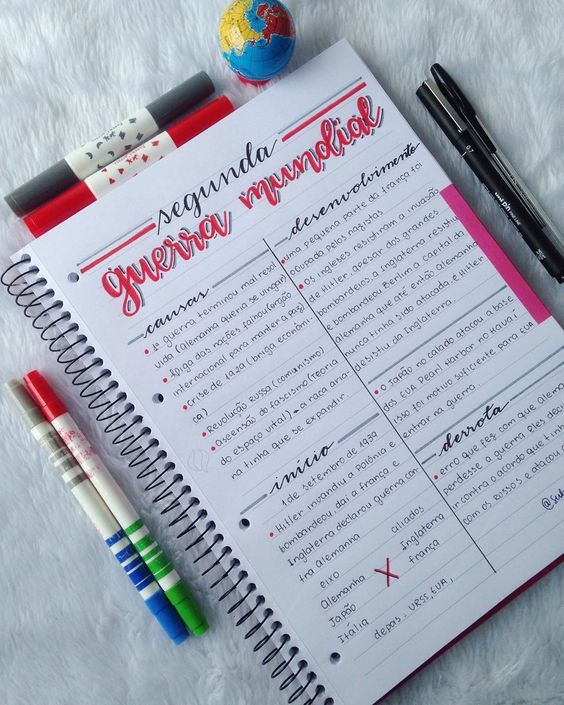 segunda
guerra mundial
causas
• 1ª guerra terminou mal resol
vida (Alemanha queria se vingar)
• liga das nações falhou (órgão
internacional para manter a paz)
• Crise de 1929 (briga econômi
ca)
• Revolução Russa (comunismo)
• Ascensão do fascismo (teoria
do espaço vital) - a raça aria-
na tinha que se expandir.
início
1 de setembro de 1939
• Hitler invandiu a Polônia e
bombardeou, daí a frança e
Inglaterra declarou guerra con
tra Alemanha
eixo
aliados
Alemanha X Inglaterra
Japão
frança
Itália
depois: URSS, EUA,
desenvolvimento
• uma pequena parte da frança foi
ocupada pelos nazistas
• Os ingleses resistiram a invasão
de Hitler, apesar dos grandes
bombardeios, a Inglaterra resistiu
e bombardeou Berlim a Capital da
Alemanha que até então Alemanha
nunca tinha sido atacada, e Hitler
desistiu da Inglaterra.
• O Japão no calado atacou a base
dos EUA Pearl Harbor no Havaí,
isso foi motivo suficiente para EUA
entrar na guerra.
derrota
• erro que fez com que Alema
perdesse a guerra. Eles deci
incontra o acordo que tinh
com os russos e atacou a
uni
0.7